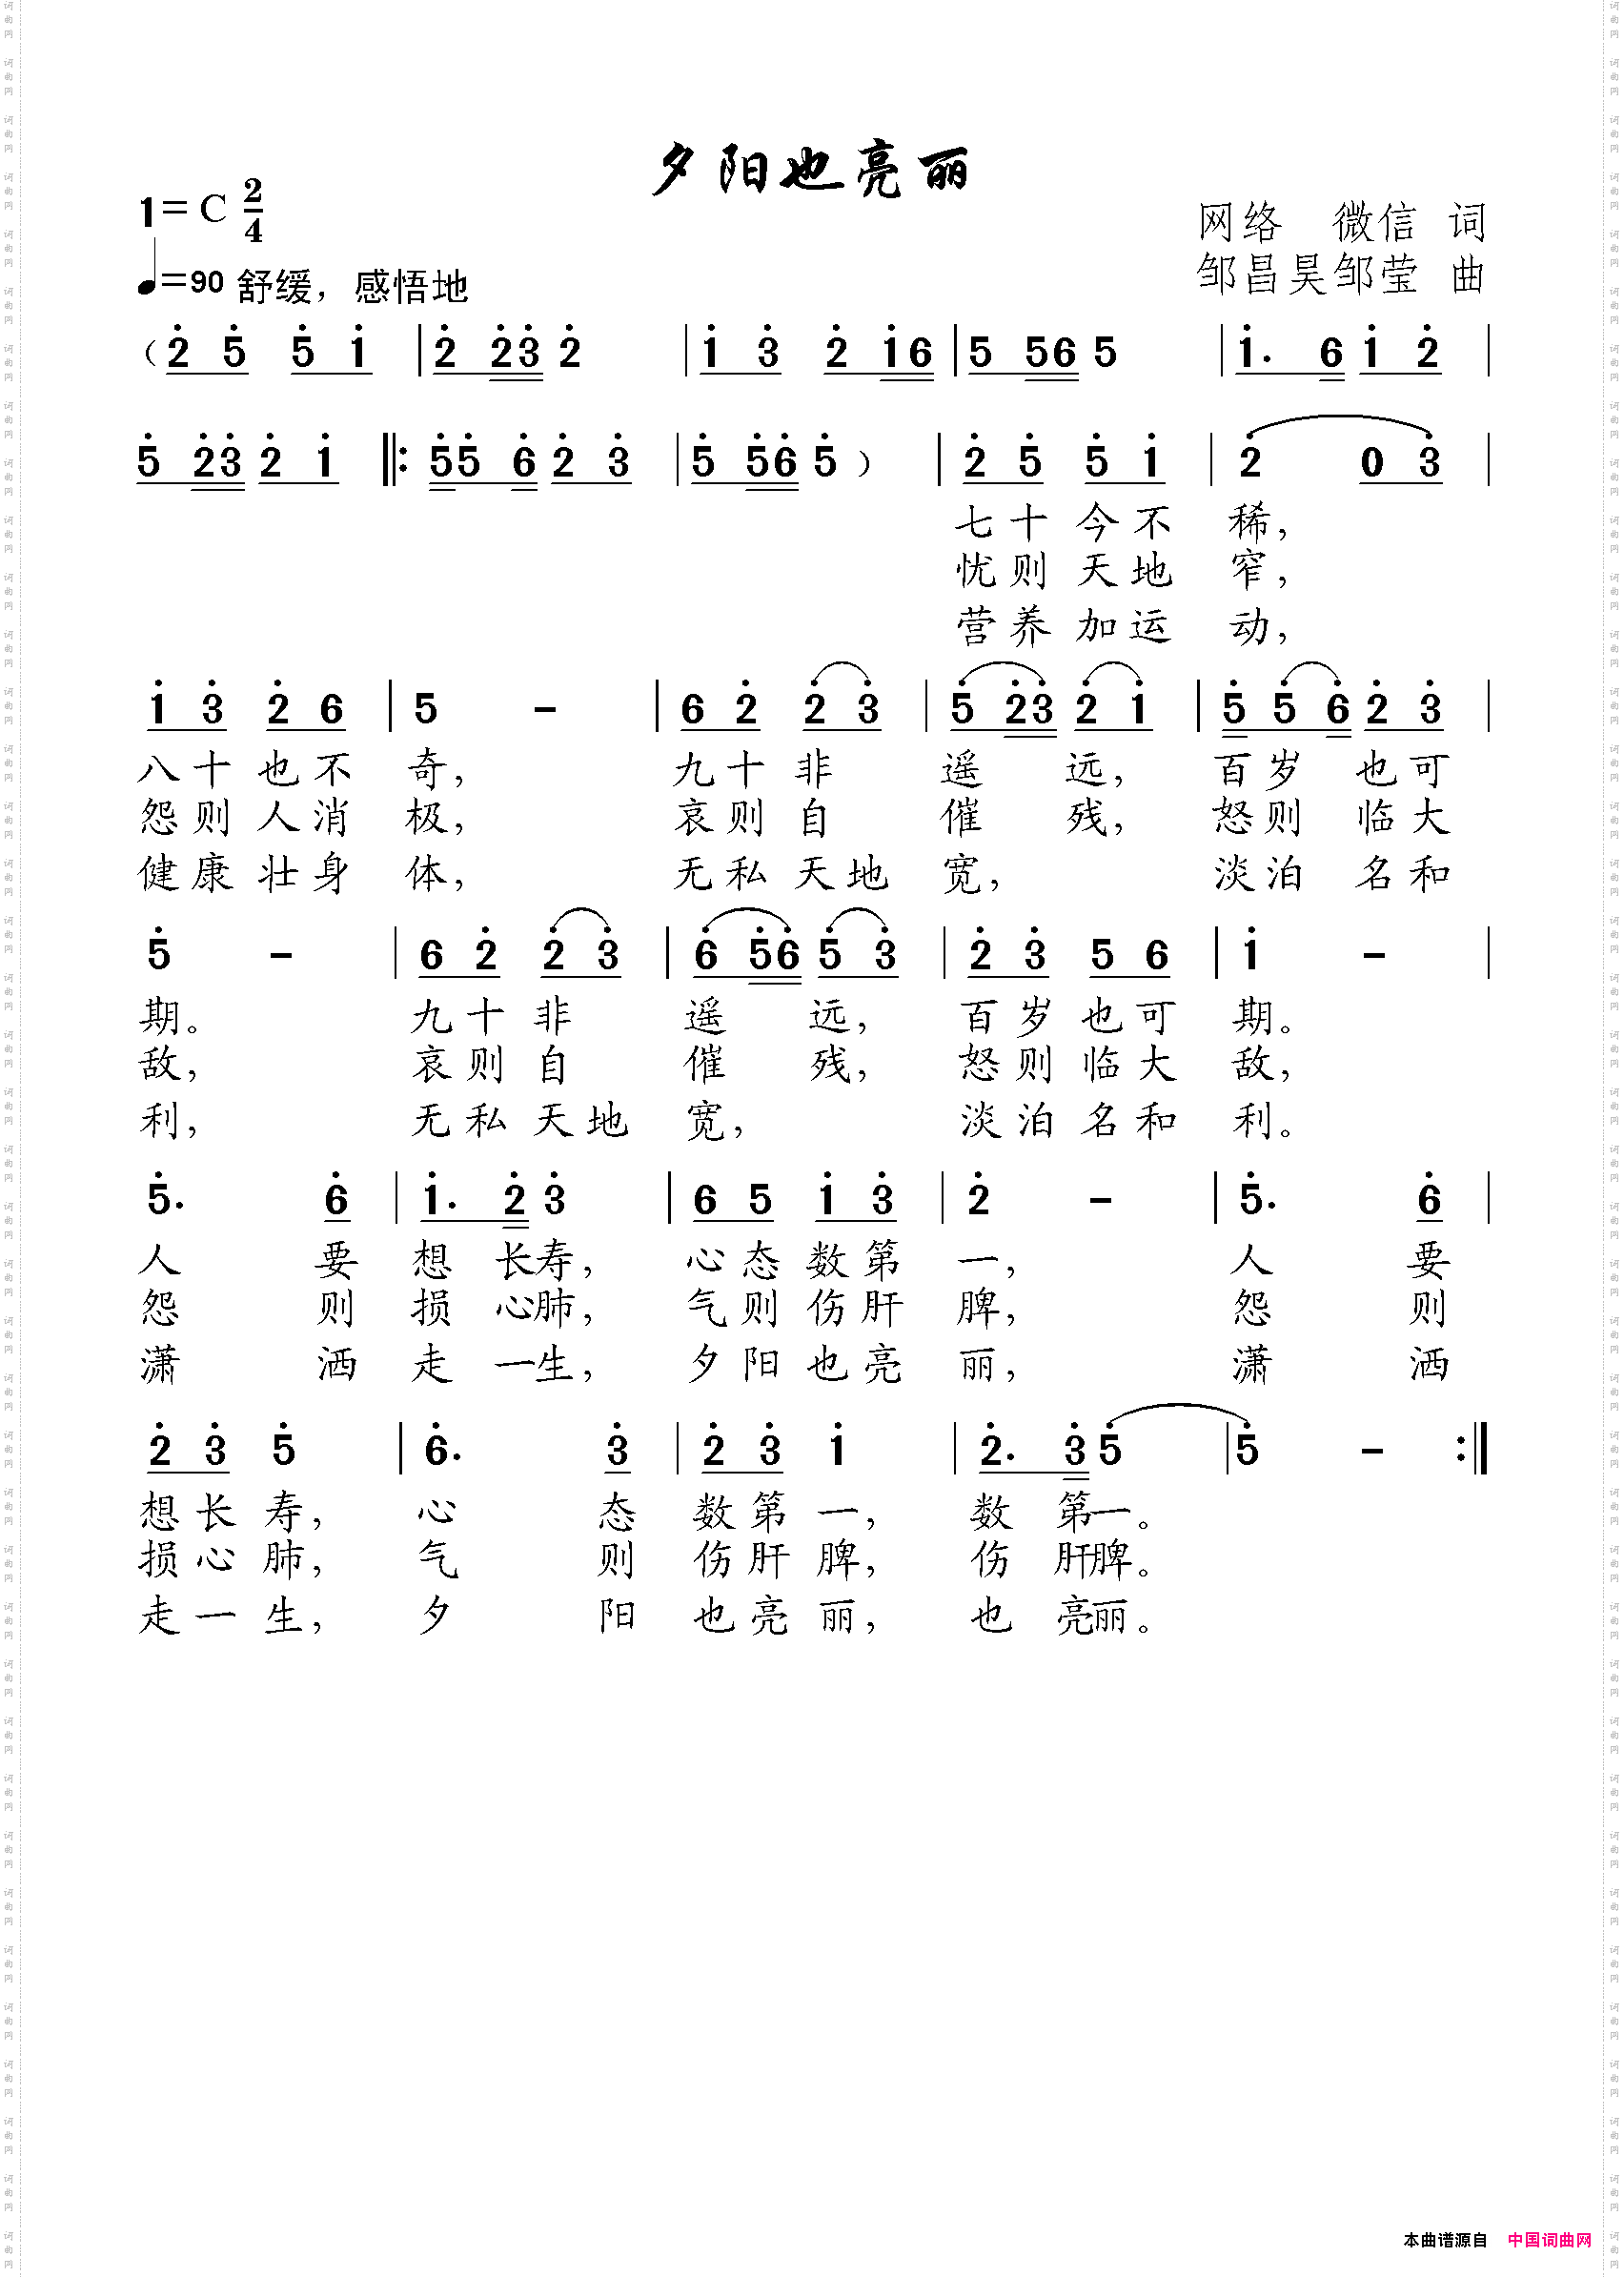 夕阳也亮丽
1= C 2/4
网络 微信 词
♩=90 舒缓，感悟地
邹昌昊邹莹 曲
（2̇ 5̇ 5̇ 1̇ | 2̇ 2̇3̇ 2̇ | 1̇ 3̇ 2̇ 1̇6 | 5 56 5 | 1̇. 6 1̇ 2̇ |
5̇ 2̇3̇ 2̇ 1̇ ‖: 5̇5̇ 6̇ 2̇ 3̇ | 5̇ 5̇6̇ 5̇ ） | 2̇ 5̇ 5̇ 1̇ | 2̇ 0 3̇ |
七十今不 稀，
忧则天地 窄，
营养加运 动，
1̇ 3̇ 2̇ 6 | 5 - | 6 2̇ 2̇ 3̇ | 5̇ 2̇3̇ 2̇ 1̇ | 5̇ 5̇ 6̇ 2̇ 3̇ |
八十也不 奇， 九十非 遥 远， 百岁 也可
怨则人消 极， 哀则自 催 残， 怒则 临大
健康壮身 体， 无私天地 宽， 淡泊 名和
5̇ - | 6 2̇ 2̇ 3̇ | 6̇ 5̇6̇ 5̇ 3̇ | 2̇ 3̇ 5 6 | 1̇ - |
期。 九十非 遥 远， 百岁也可 期。
敌， 哀则自 催 残， 怒则临大 敌，
利， 无私天地 宽， 淡泊名和 利。
5̇. 6̇ | 1̇. 2̇ 3̇ | 6 5 1̇ 3̇ | 2̇ - | 5̇. 6̇ |
人 要 想 长寿， 心态数第 一， 人 要
怨 则 损 心肺， 气则伤肝 脾， 怨 则
潇 洒 走 一生， 夕阳也亮 丽， 潇 洒
2̇ 3̇ 5̇ | 6̇. 3̇ | 2̇ 3̇ 1̇ | 2̇. 3̇ 5̇ | 5̇ - :‖
想长寿， 心 态 数第一， 数 第一。
损心肺， 气 则 伤肝脾， 伤 肝脾。
走一生， 夕 阳 也亮丽， 也 亮丽。
本曲谱源自 中国词曲网